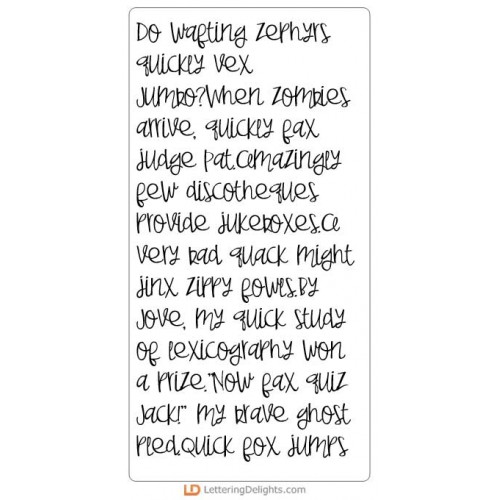 Do wafting zephyrs
quickly vex
Jumbo?When zombies
arrive, quickly fax
judge Pat.Amazingly
few discotheques
provide jukeboxes.A
very bad quack might
jinx zippy fowls.By
Jove, my quick study
of lexicography won
a prize."Now fax quiz
Jack!" my brave ghost
pled.Quick fox jumps
LD LetteringDelights.com